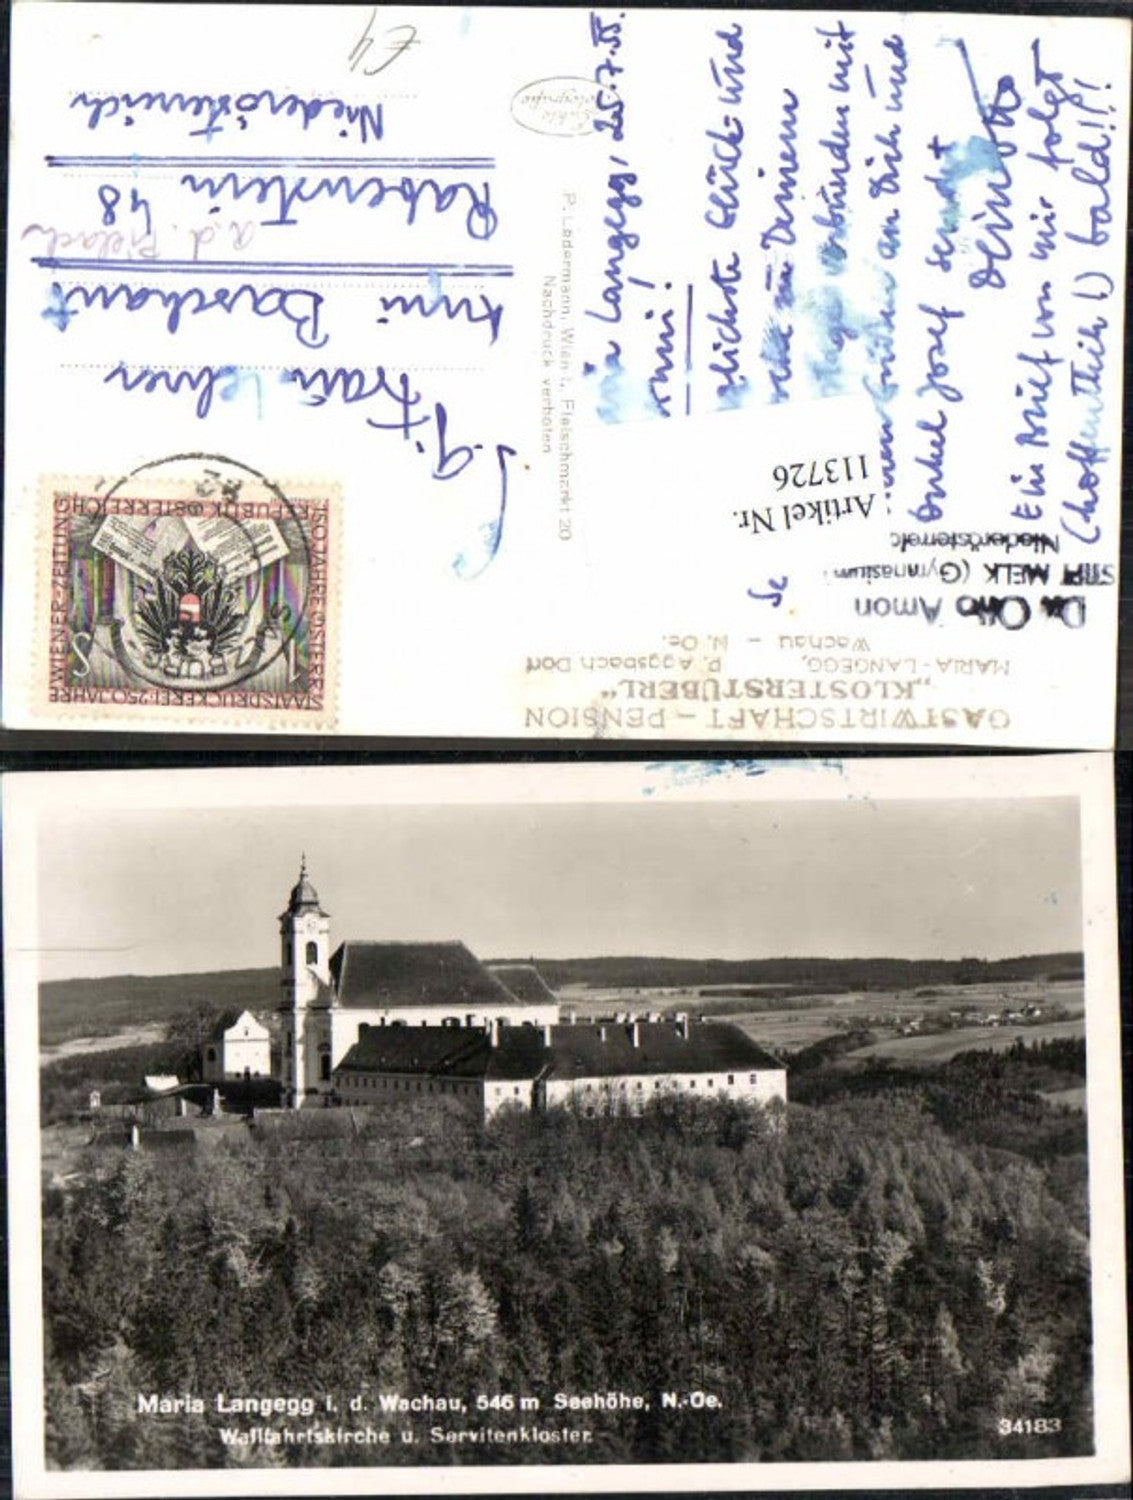 GASTWIRTSCHAFT – PENSION
„KLOSTERSTÜBERL“
MARIA-LANGEGG, P. Aggsbach Dorf
Wachau – N. Oe.
Dr. Otto Amon
STIFT MELK (Gymnasium)
Niederösterreich
Artikel Nr.
113726
Langegg, 25.7.
Glück- und
zu Deinem
verbunden mit
an Dich und
Onkel Josef sendet
Dein Otto
Ein Brief von mir folgt
(hoffentlich!) bald!!
P. Ledermann, Wien I., Fleischmarkt 20
Nachdruck verboten
Echte
Fotografie
150 JAHRE ÖSTERR.
STAATSDRUCKEREI·250 JAHRE
WIENER-ZEITUNG
REPUBLIK ÖSTERREICH
1 S
S. g.
Frau Lehrer
Anni
Rabenstein 48
a. d. Pielach
Niederösterreich
£4
Maria Langegg i. d. Wachau, 546 m Seehöhe, N.-Oe.
Wallfahrtskirche u. Servitenkloster.
34183